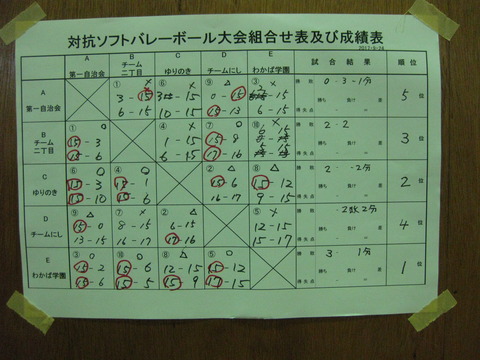 対抗ソフトバレーボール大会組合せ表及び成績表
2017-9-24
A 第一自治会
B チーム二丁目
C ゆりのき
D チームにし
E わかば学園
試合結果
順位
A
第一自治会
① ×
3-15
6-15
⑥ ×
3-15
10-15
⑨ △
0-15
15-13
③ ×
2-15
6-15
勝敗 0-3-1分
勝ち 負け 差
得失点
5位
B
チーム二丁目
① ○
15-3
15-6
④ ×
1-15
6-15
⑦ ○
15-8
17-16
⑩
6-15
5-15
勝敗 2-2
勝ち 負け 差
得失点
3位
C
ゆりのき
⑥ ○
15-3
15-10
④ ○
15-1
15-6
② △
15-6
16-17
⑧ △
15-12
9-15
勝敗 2 -2分
勝ち 負け 差
得失点
2位
D
チームにし
⑨ △
15-0
13-15
⑦ ×
8-15
16-17
② △
6-15
17-16
⑤ ×
12-15
15-17
勝敗 -2敗2分
勝ち 負け 差
得失点
4位
E
わかば学園
③ ○
15-2
15-6
⑩ ○
15-6
15-5
⑧ △
12-15
15-9
⑤ ○
15-12
17-15
勝敗 3- 1分
勝ち 負け 差
得失点
1位